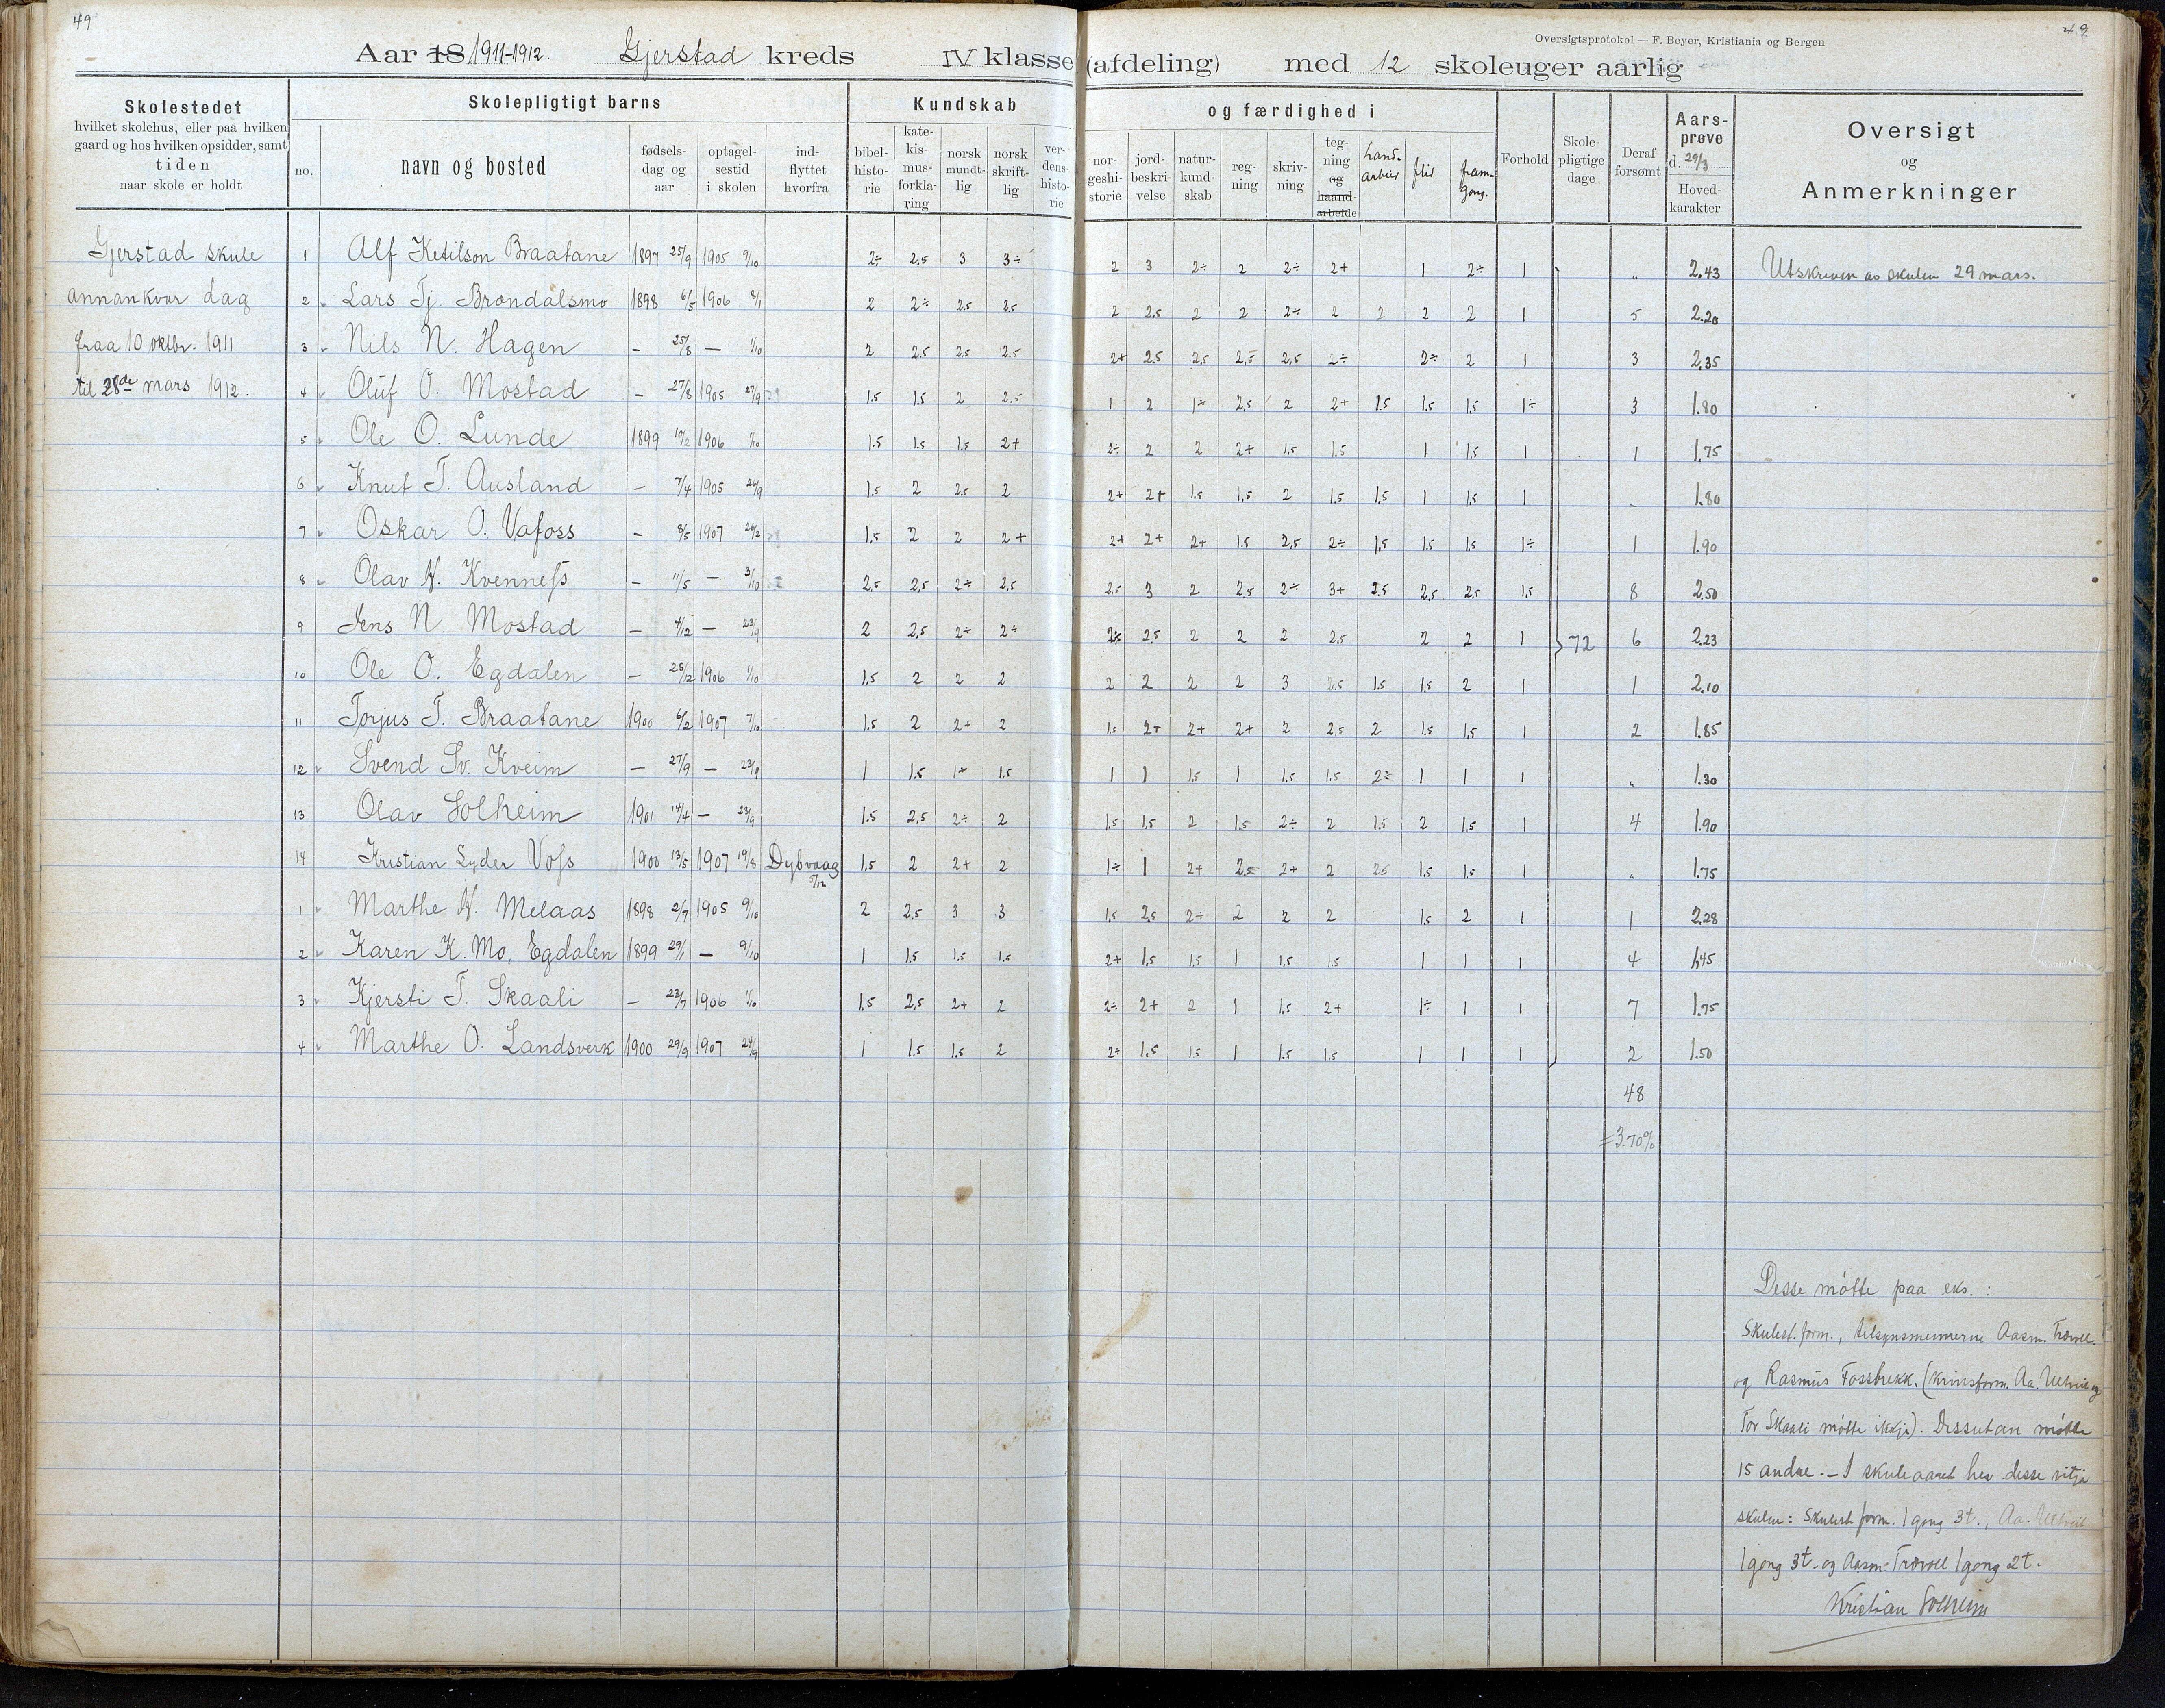 49
49
Oversigtsprotokol — F. Beyer, Kristiania og Bergen
Aar 18 1911-1912. Gjerstad kreds IV klasse (afdeling) med 12 skoleuger aarlig
Skolestedet hvilket skolehus, eller paa hvilken gaard og hos hvilken opsidder, samt tiden naar skole er holdt
Skolepligtigt barns
no. navn og bosted fødsels-dag og aar optagel-sestid i skolen ind-flyttet hvorfra
Kundskab og færdighed i
bibel-histo-rie kate-kis-mus-forkla-ring norsk mundt-lig norsk skrift-lig ver-dens-histo-rie nor-geshi-storie jord-beskri-velse natur-kund-skab reg-ning skriv-ning teg-ning og haand-arbeide hand-arbeid flid fram-gong.
Forhold Skole-pligtige dage Deraf forsømt Aars-prøve d. 29/3 Hoved-karakter
Oversigt og Anmerkninger
Gjerstad skule
annankvar dag
fraa 10 oktbr. 1911
til 28de mars 1912.
1 Alf Ketilson Braatane 1897 25/9 1905 9/10 2÷ 2,5 3 3÷ 2 3 2÷ 2 2÷ 2+ 1 2÷ 1 „ 2,43 Utskriven av skulen 29 mars.
2 Lars Tj. Brøndalsmo 1898 6/5 1906 8/1 2 2÷ 2.5 2.5 2 2.5 2 2 2÷ 2 2 2 2 1 5 2.20
3 Nils N. Hagen – 25/8 — 1/10 2 2.5 2.5 2.5 2+ 2.5 2.5 2,5 2,5 2÷ 2÷ 2 1 3 2,35
4 Oluf O. Mostad – 27/8 1905 27/9 1.5 1.5 2 2.5 1 2 1÷ 2,5 2 2+ 1.5 1.5 1.5 1÷ 3 1.80
5 Ole O. Lunde 1899 1906 1/10 1.5 1.5 1.5 2+ 2÷ 2 2 2+ 1.5 1.5 1 1.5 1 1 1.75
6 Knut T. Ausland – 7/4 1905 26/9 1.5 2 2.5 2 2+ 2+ 1.5 1.5 2 1.5 1.5 1 1.5 1 „ 1.80
7 Oskar O. Vafoss – 8/5 1907 1.5 2 2 2+ 2+ 2+ 2+ 1.5 2,5 2÷ 1.5 1.5 1.5 1÷ 1 1.90
8 Olav N. Kvenness – 11/5 — 3/10 2.5 2,5 2÷ 2,5 2.5 3 2 2.5 2÷ 3+ 2.5 2,5 2,5 1.5 8 2.50
9 Jens N. Mostad – 4/12 — 23/9 2 2,5 2÷ 2÷ 2÷ 2.5 2 2 2 2,5 2 2 1 72 6 2.23
10 Ole O. Egdalen – 28/12 1906 1/10 1.5 2 2 2 2 2 2 2 3 2,5 1.5 1.5 2 1 1 2.10
11 Torjus T. Braatane 1900 6/2 1907 7/10 1.5 2 2+ 2 1.5 2+ 2+ 2+ 2 2,5 2 1.5 1.5 1 2 1.85
12 Svend Sv. Kveim – 27/9 — 23/9 1 1.5 1÷ 1.5 1 1 1.5 1 1.5 1.5 2÷ 1 1 1 „ 1.30
13 Olav Solheim 1901 14/4 — 23/9 1.5 2,5 2÷ 2 1.5 1.5 2 1.5 2÷ 2 1.5 2 1.5 1 4 1.90
14 Kristian Lyder Voss 1900 13/5 1907 19/8 Dybvaag 5/12 1.5 2 2+ 2 1÷ 1 2+ 2,5 2+ 2 2.5 1.5 1.5 1 „ 1.75
1 Marthe N. Melaas 1898 2/7 1905 9/10 2 2,5 3 3 1.5 2,5 2÷ 2 2 2 1.5 2 1 1 2.28
2 Karen K. Mo, Egdalen 1899 29/1 — 9/10 1 1.5 1.5 1.5 2+ 1.5 1.5 1 1.5 1.5 1 1 1 4 1.45
3 Kjersti T. Skaali – 23/7 1906 1/10 1.5 2,5 2+ 2 2÷ 2+ 2 1 1.5 2+ 1÷ 1 1 7 1.75
4 Marthe O. Landsverk 1900 29/9 1907 24/9 1 1.5 1.5 2 2÷ 1.5 1.5 1 1.5 1.5 1 1 1 2 1.50
48
=3.70%
Desse møtte paa eks. :
Skulest. form., tilsynsmennerne Aasm. Trøvoll
og Rasmus Fossbrekk. (Krinsform. Aa. Ulltveit og
Tor Skaali møtte ikkje). Dessutan møtte
15 andre. — I skuleaaret hev desse vitja
skulen: Skulest. form. 1 gong 3t., Aa. Ulltveit
1 gong 3t. og Aasm. Trøvoll 1 gong 2t.
Kristian Solheim